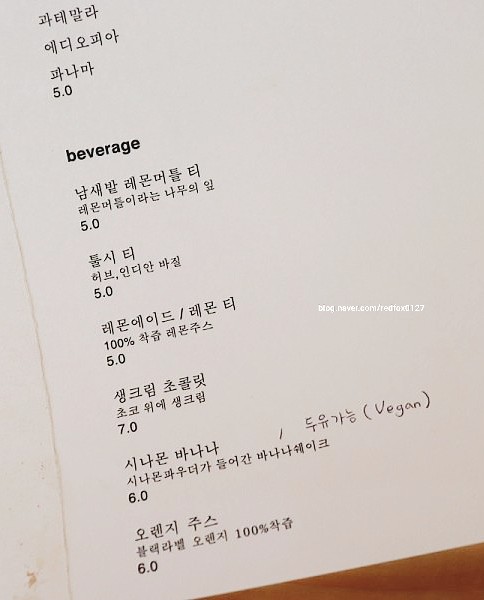 과테말라
에디오피아
파나마
5.0
beverage
남새밭 레몬머틀 티
레몬머틀이라는 나무의 잎
5.0
툴시 티
허브,인디안 바질
5.0
레몬에이드 / 레몬 티
100% 착즙 레몬주스
5.0
blog.naver.com/redfox0127
생크림 초콜릿
초코 위에 생크림
7.0
시나몬 바나나 / 두유가능 (Vegan)
시나몬파우더가 들어간 바나나쉐이크
6.0
오렌지 주스
블랙라벨 오렌지 100%착즙
6.0